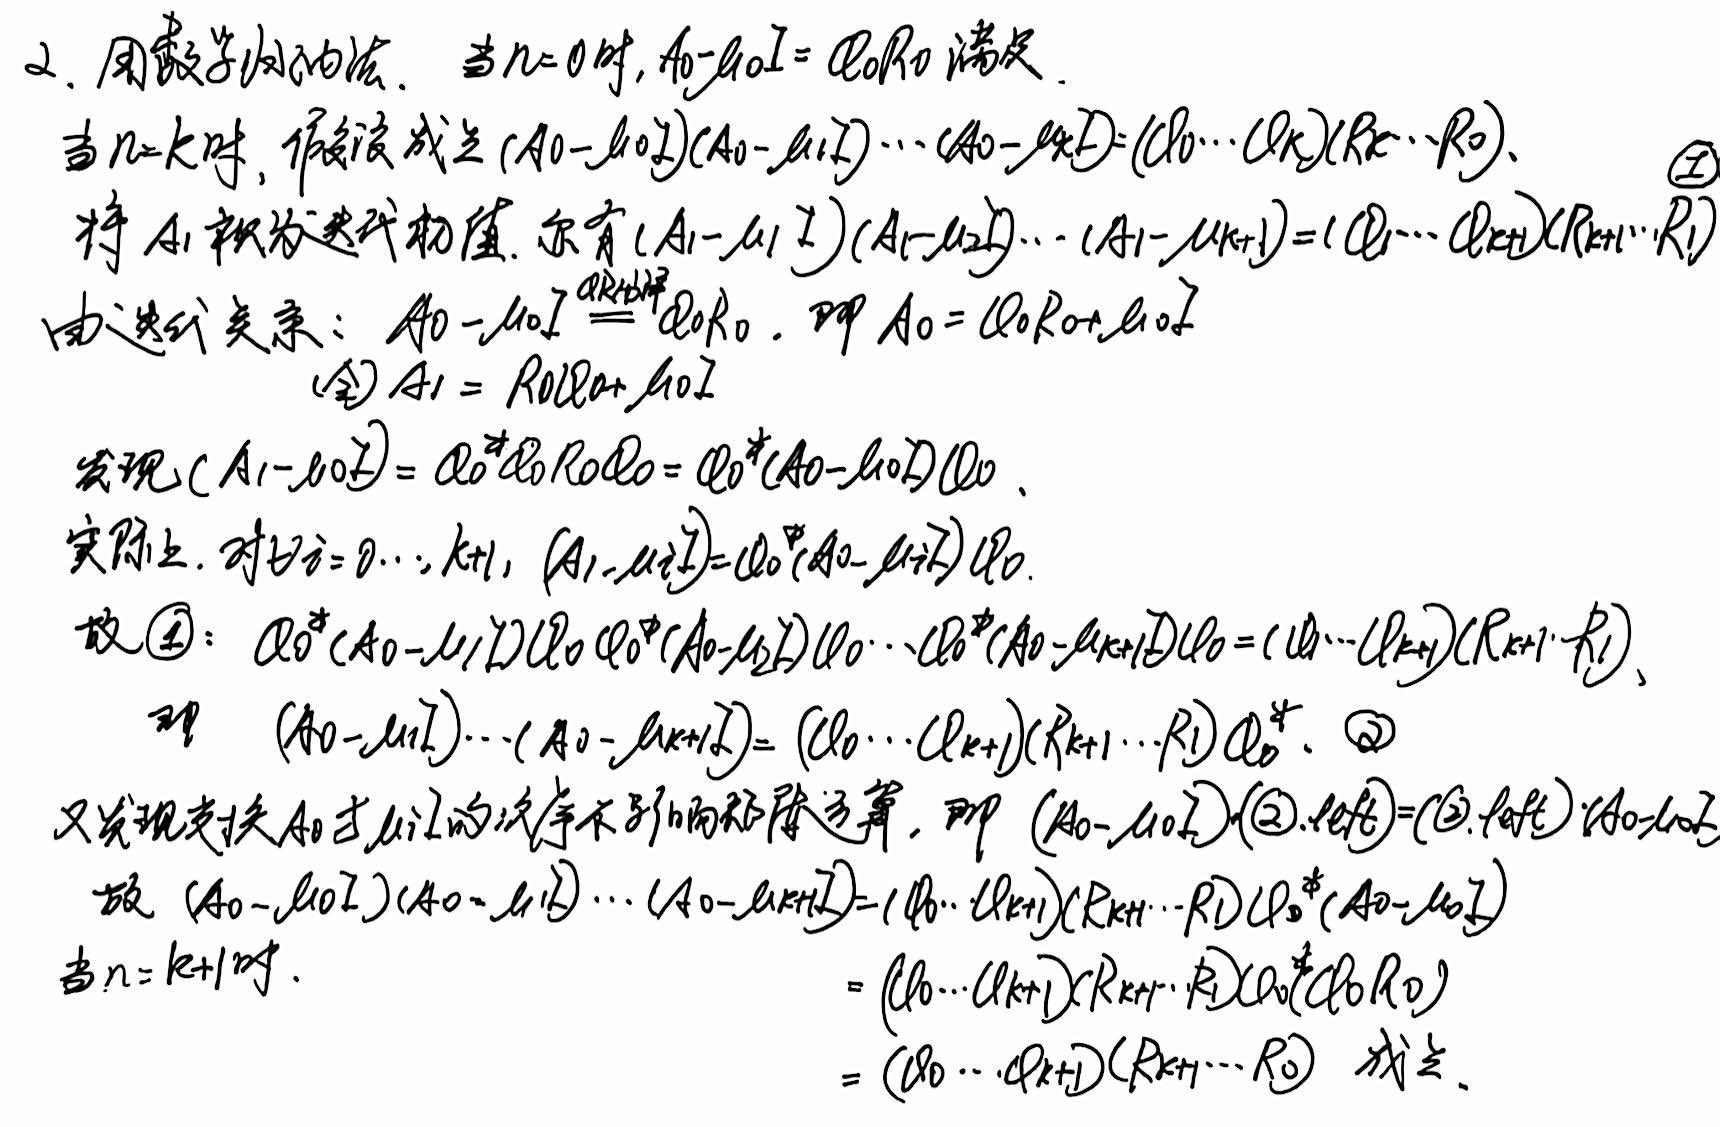 2. 用数学归纳法. 当n=0时, A0-μ0I=Q0R0 满足.
当n=k时, 假设成立 (A0-μ0I)(A0-μ1I)⋯(A0-μkI)=(Q0⋯Qk)(Rk⋯R0).
①
将 A1 视为迭代初值. 亦有 (A1-μ1I)(A1-μ2I)⋯(A1-μk+1)=(Q1⋯Qk+1)(Rk+1⋯R1)
由迭代关系: A0-μ0I QR分解= Q0R0. 即 A0=Q0R0+μ0I
(令) A1 = R0Q0+μ0I
发现 (A1-μ0I)=Q0*Q0R0Q0=Q0*(A0-μ0I)Q0.
实际上. 对∀i=0⋯,k+1, (A1-μiI)=Q0*(A0-μiI)Q0.
故①: Q0*(A0-μ1I)Q0Q0*(A0-μ2I)Q0⋯Q0*(A0-μk+1I)Q0=(Q1⋯Qk+1)(Rk+1⋯R1).
即 (A0-μ1I)⋯(A0-μk+1I)=(Q0⋯Qk+1)(Rk+1⋯R1)Q0*. ②
又发现交换A0与μiI的次序不影响矩阵运算, 即 (A0-μ0I)·(②.left)=(②.left)·(A0-μ0I)
故 (A0-μ0I)(A0-μ1I)⋯(A0-μk+1I)=(Q0⋯Qk+1)(Rk+1⋯R1)Q0*(A0-μ0I)
当n=k+1时. = (Q0⋯Qk+1)(Rk+1⋯R1)Q0*(Q0R0)
= (Q0⋯Qk+1)(Rk+1⋯R0) 成立.